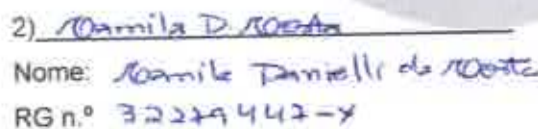 2) Camila D. Costa
Nome: Camila Danielli da Costa
RG n.º 32279447-X